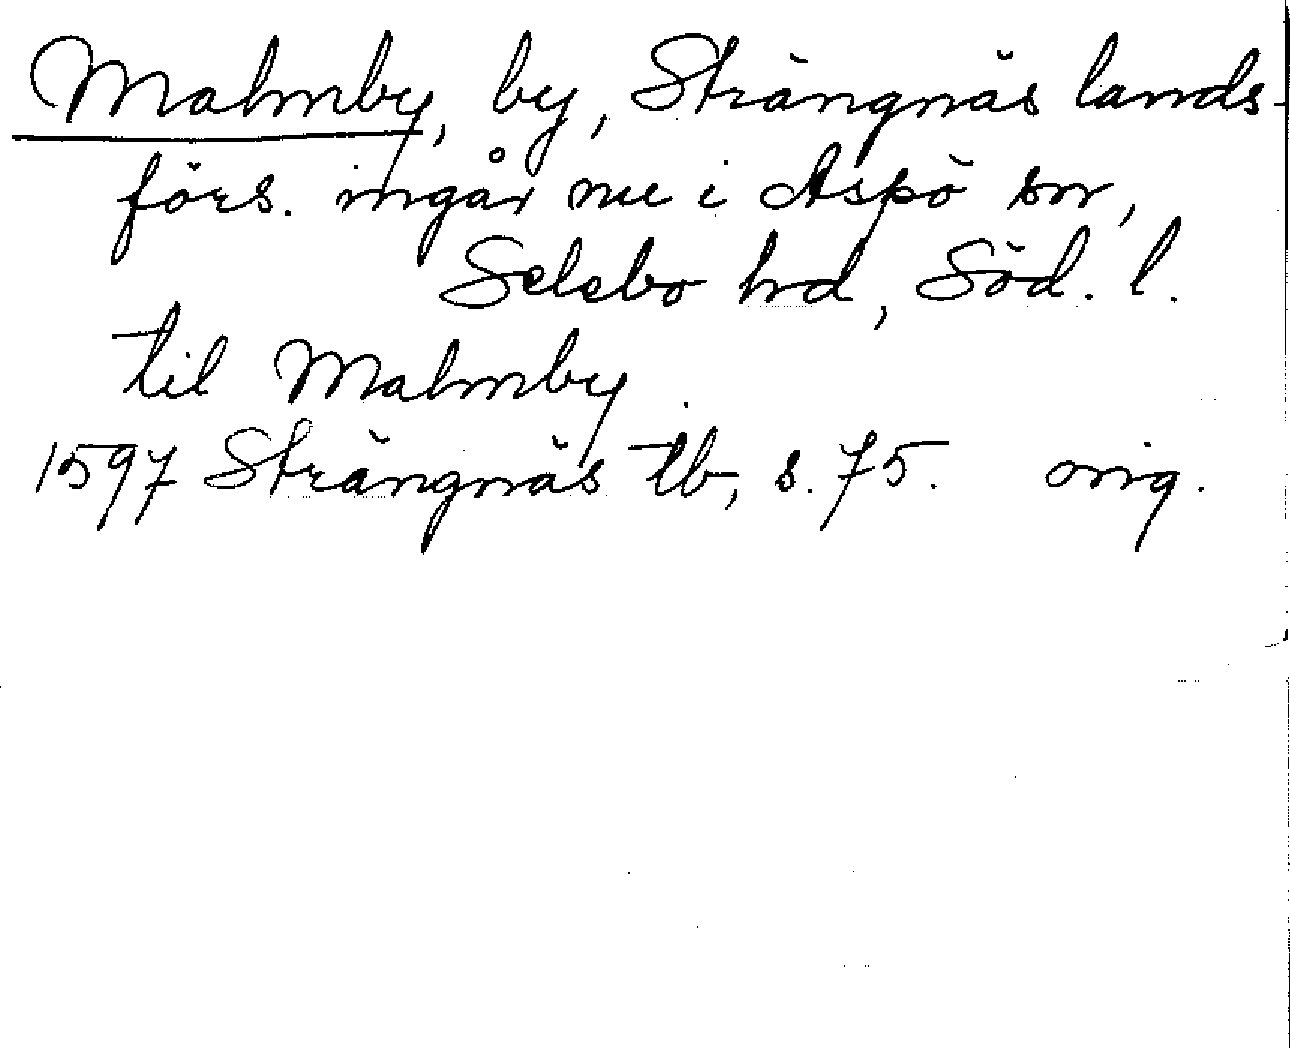 Malmby, by, Strängnäs lands-
förs. ingår nu i Aspö sn,
Selebo hd, Söd. l.
til Malmby
1597 Strängnäs tb, s. 75. orig.